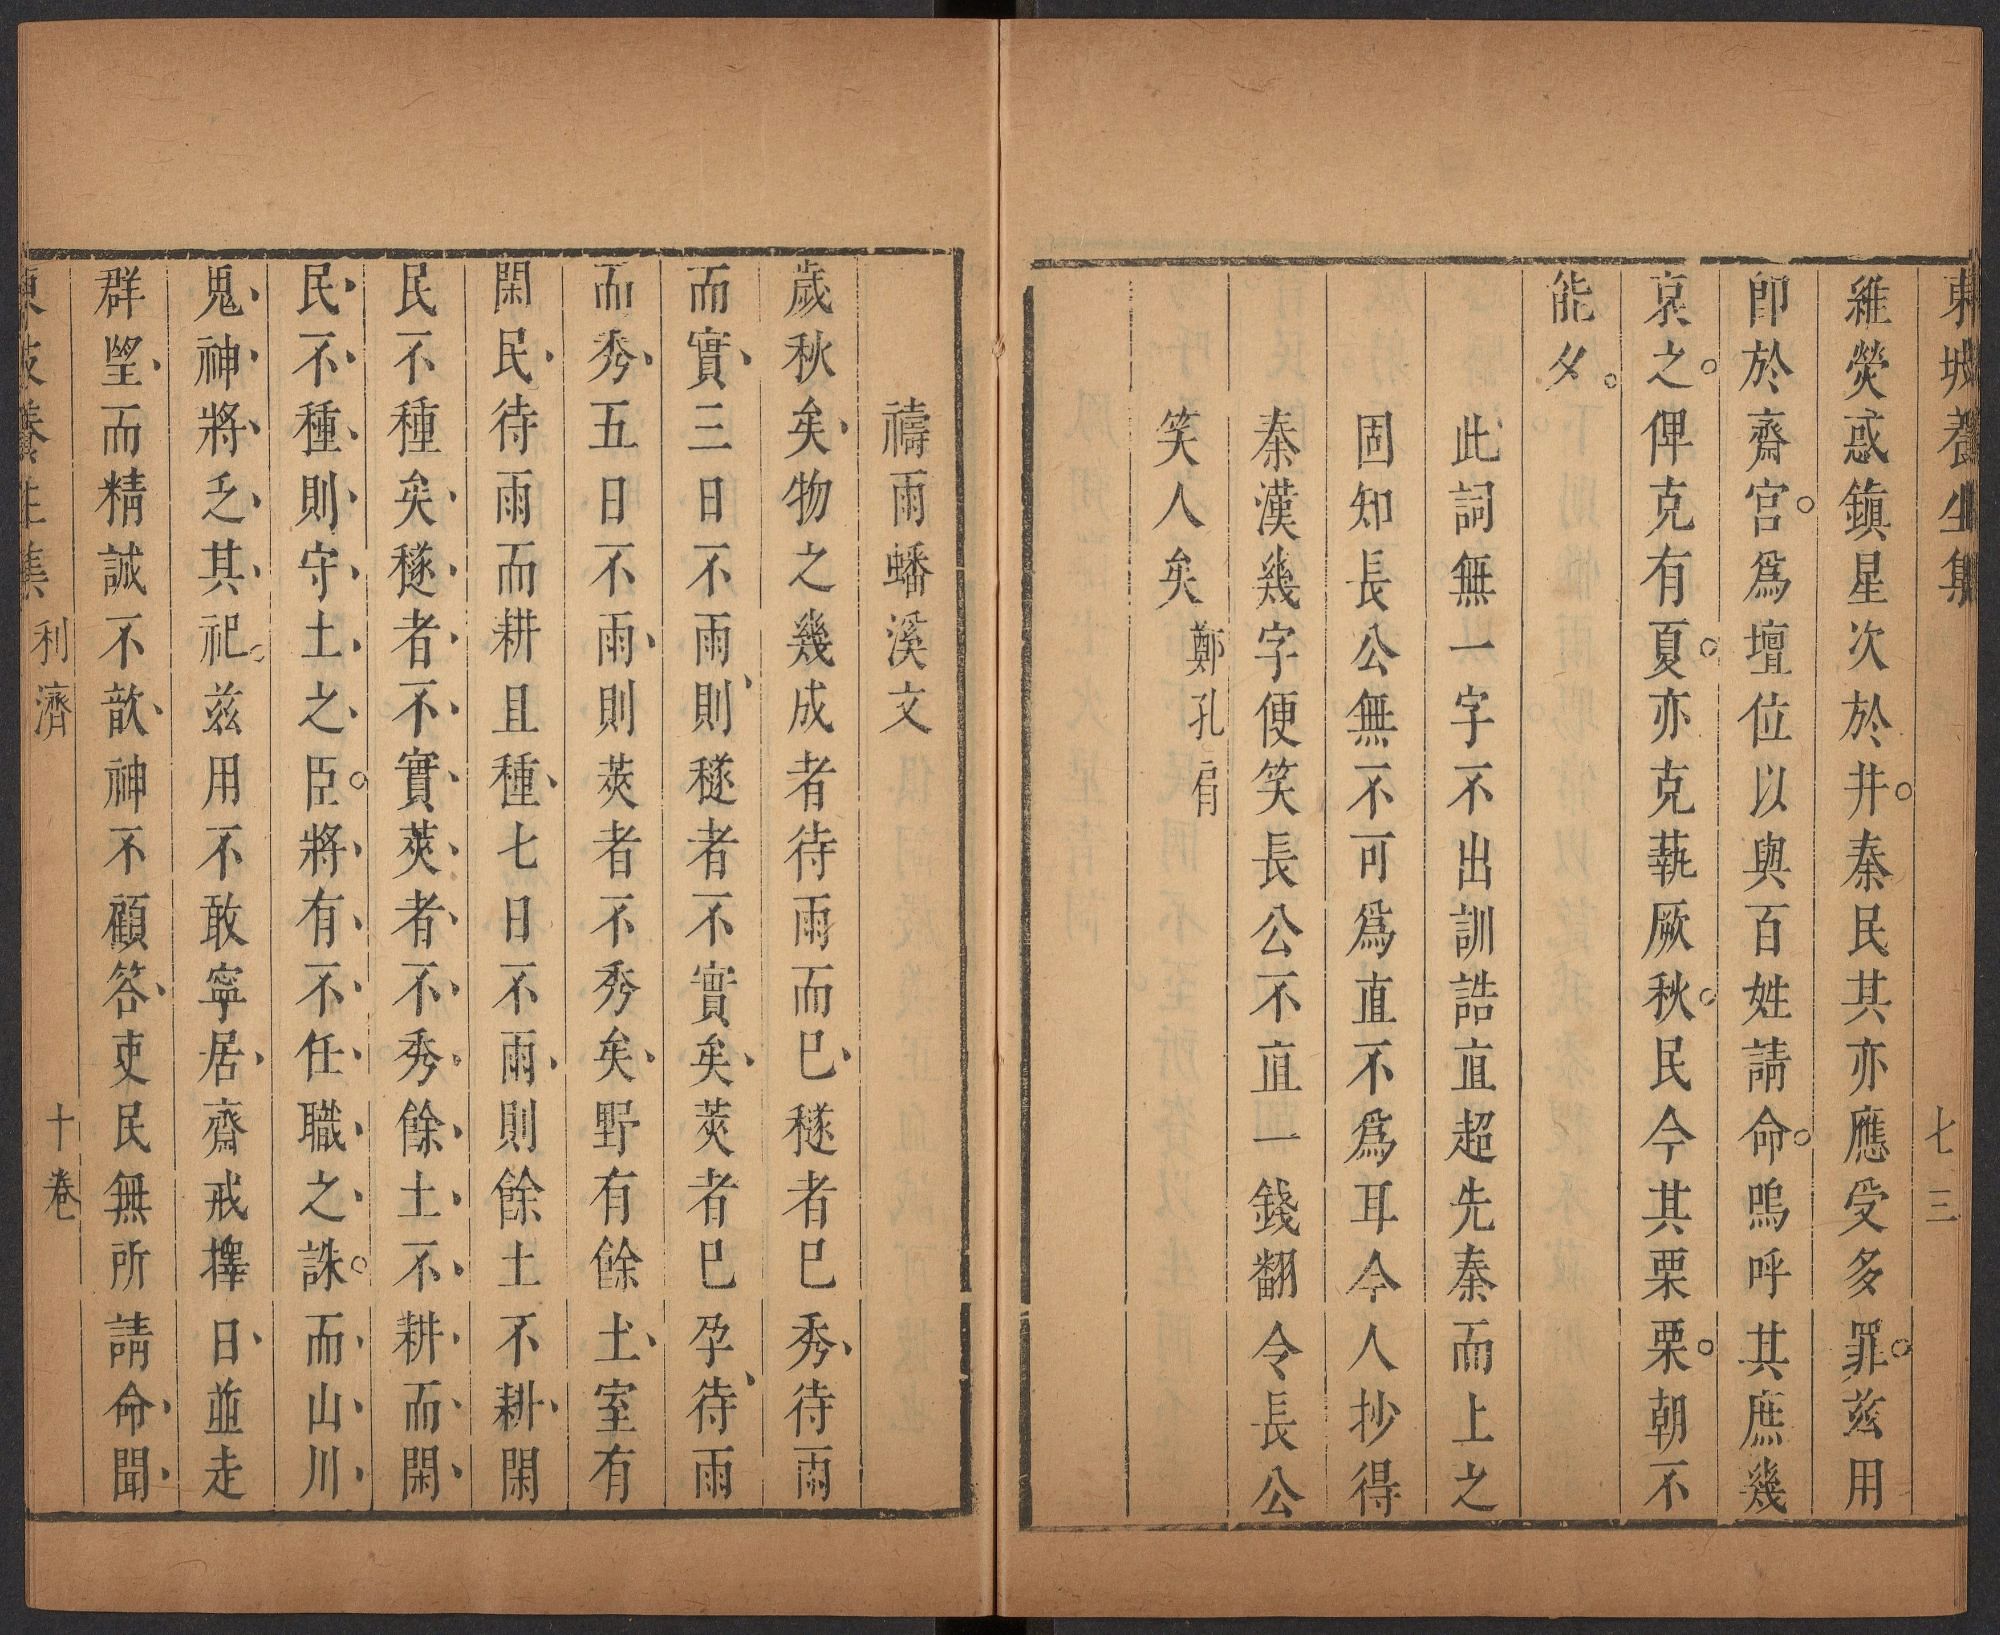 東坡養生集 七三
維熒惑鎮星次於井秦民其亦應受多罪茲用
即於齋宮爲壇位以與百姓請命嗚呼其庶幾
哀之俾克有夏亦克蓺厥秋民今其栗栗朝不
能夕
此詞無一字不出訓誥直超先秦而上之
固知長公無不可爲直不爲耳今人抄得
秦漢幾字便笑長公不直一錢翻令長公
笑人矣 鄭孔肩
禱雨蟠溪文
歲秋矣物之幾成者待雨而已穟者已秀待雨
而實三日不雨則穟者不實矣莢者已孕待雨
而秀五日不雨則莢者不秀矣野有餘土室有
閑民待雨而耕且種七日不雨則餘土不耕閑
民不種矣穟者不實莢者不秀餘土不耕而閑
民不種則守土之臣將有不任職之誅而山川
鬼神將乏其祀茲用不敢寧居齋戒擇日並走
群望而精誠不歆神不顧答吏民無所請命聞
東坡養生集 利濟 十卷